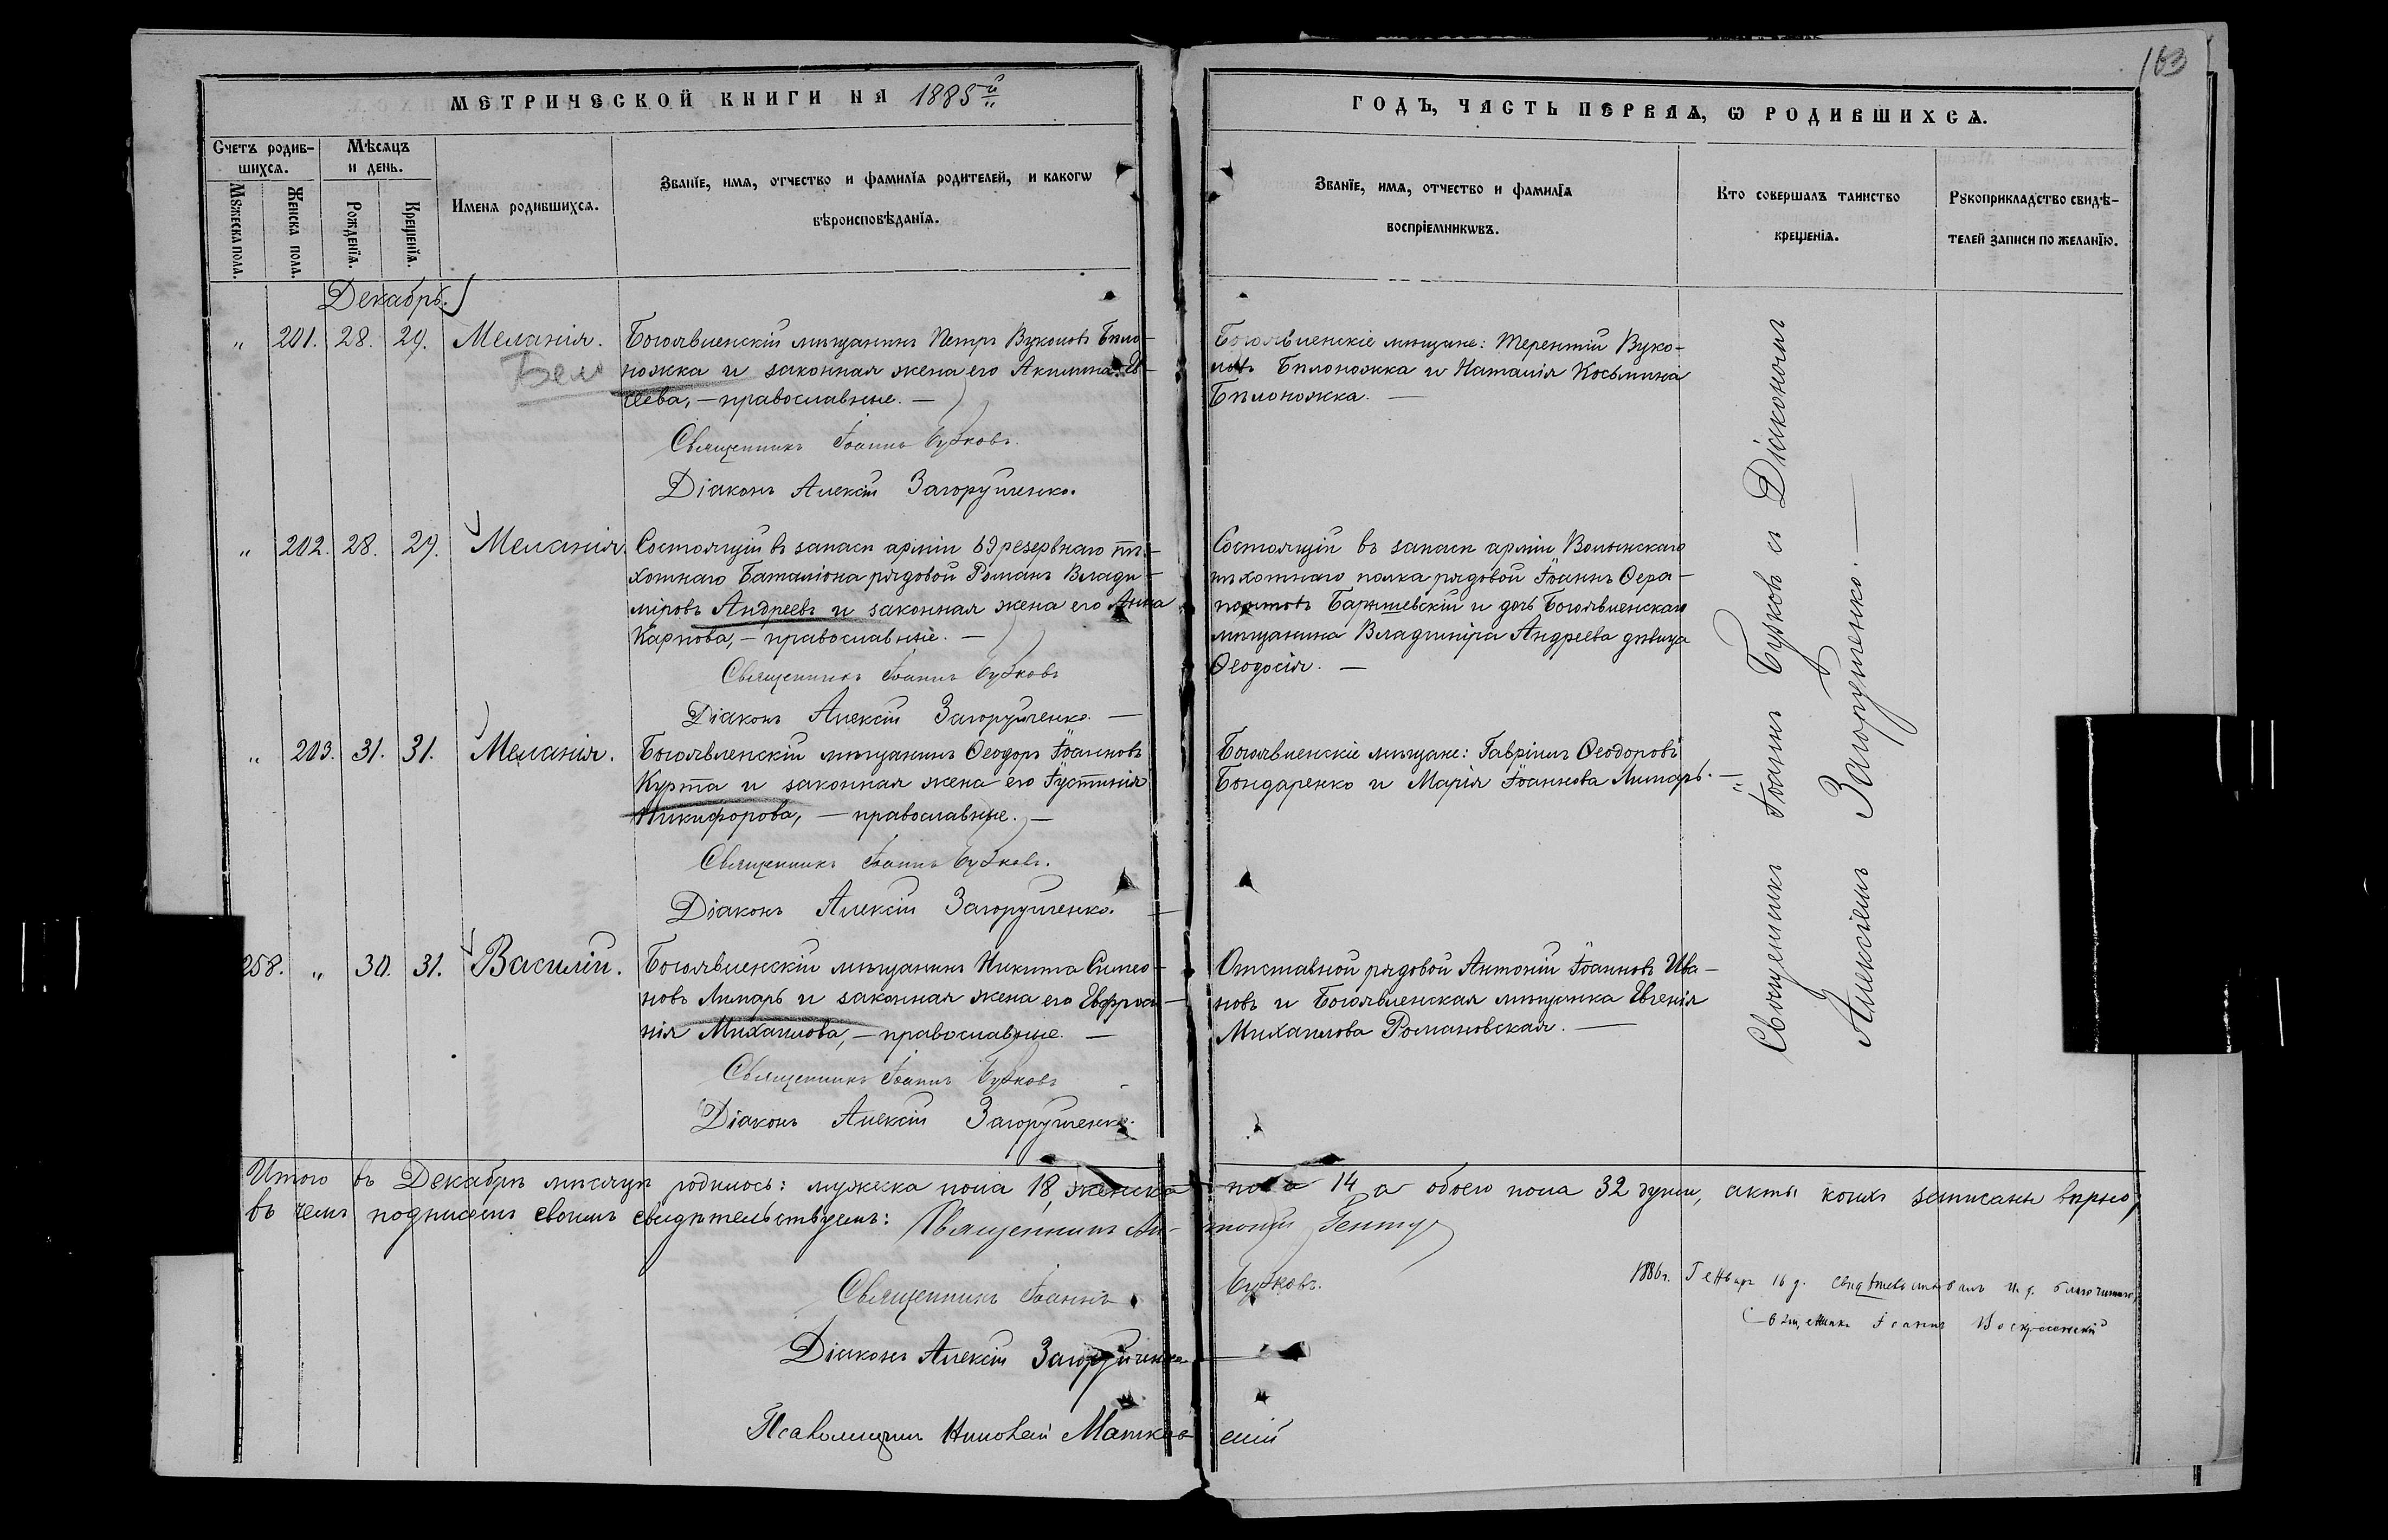 163
МЕТРИЧЕСКОЙ КНИГИ НА 1885й
ГОДЪ, ЧАСТЬ ПЕРВАѦ, Ѡ РОДИВШИХСѦ.
Счетъ родив-
шихсѧ.
Мѣсѧцъ
и день.
Мꙋжеска пола.
Женска пола.
Рожденїѧ.
Крещенїѧ.
Имена родившихсѧ.
Званїе, имѧ, отчество и фамилїѧ родителей, и какогѡ
вѣроисповѣданїѧ.
Званїе, имѧ, отчество и фамилїѧ
воспрїемникѡвъ.
Кто совершалъ таинство
крещенїѧ.
Рꙋкоприкладство свидѣ-
телей записи по желанїю.
Декабрь.
„ 201. 28. 29. Меланія.
Бело
Богоявленскій мѣщанинъ Петръ Вуколовъ Бѣло-
ножка и законная жена его Акилина Ев-
теева, — православные. —
Священникъ Іоаннъ Бужковъ.
Діаконъ Алексій Загорульченко.
Богоявленскіе мѣщане: Терентій Вуко-
ловъ Бѣлоножка и Наталія Косьмина
Бѣлоножка. —
„ 202. 28. 29. Меланія.
Состоящій въ запасѣ арміи 69 резервнаго пѣ-
хотнаго баталіона рядовой Романъ Влади-
міровъ Андреевъ и законная жена его Анна
Карпова, — православные. —
Священникъ Іоаннъ Бужковъ
Діаконъ Алексій Загорульченко. —
Состоящій въ запасѣ арміи Волынскаго
пѣхотнаго полка рядовой Іоаннъ Ѳера-
понтовъ Барышевскій и дочь Богоявленскаго
мѣщанина Владиміра Андреева дѣвица
Ѳеодосія. —
„ 203. 31. 31. Меланія.
Богоявленскій мѣщанинъ Ѳеодоръ Іоанновъ
Курта и законная жена его Іустинія
Никифорова, — православные. —
Священникъ Іоаннъ Бужковъ.
Діаконъ Алексій Загорульченко. —
Богоявленскіе мѣщане: Гавріилъ Ѳеодоровъ
Бондаренко и Марія Іоаннова Лимарь. —
258. „ 30. 31. Василій.
Богоявленскій мѣщанинъ Никита Симео-
новъ Лимарь и законная жена его Евфроси-
нія Михаилова, — православные. —
Священникъ Іоаннъ Бужковъ
Діаконъ Алексій Загорульченко.
Отставной рядовой Антоній Іоанновъ Ива-
новъ и Богоявленская мѣщанка Евгенія
Михаилова Романовская. —
Священникъ Іоаннъ Бужковъ съ Діакономъ
Алексіемъ Загорульченко. —
Итого въ Декабрѣ мѣсяцѣ родилось: мужеска пола 18, женска пола 14 а обоего пола 32 души, акты коихъ записаны вѣрно,
въ чемъ подписомъ своимъ свидѣтельствуемъ: Священникъ Ан-
тоній
Священникъ Іоаннъ Бужковъ.
Діаконъ Алексій Загорульченко —
Псаломщикъ
1886г. Генваря 16 д. свидѣтельствовалъ И. д. благочиннаго,
Священникъ Іоаннъ Воскресенскій